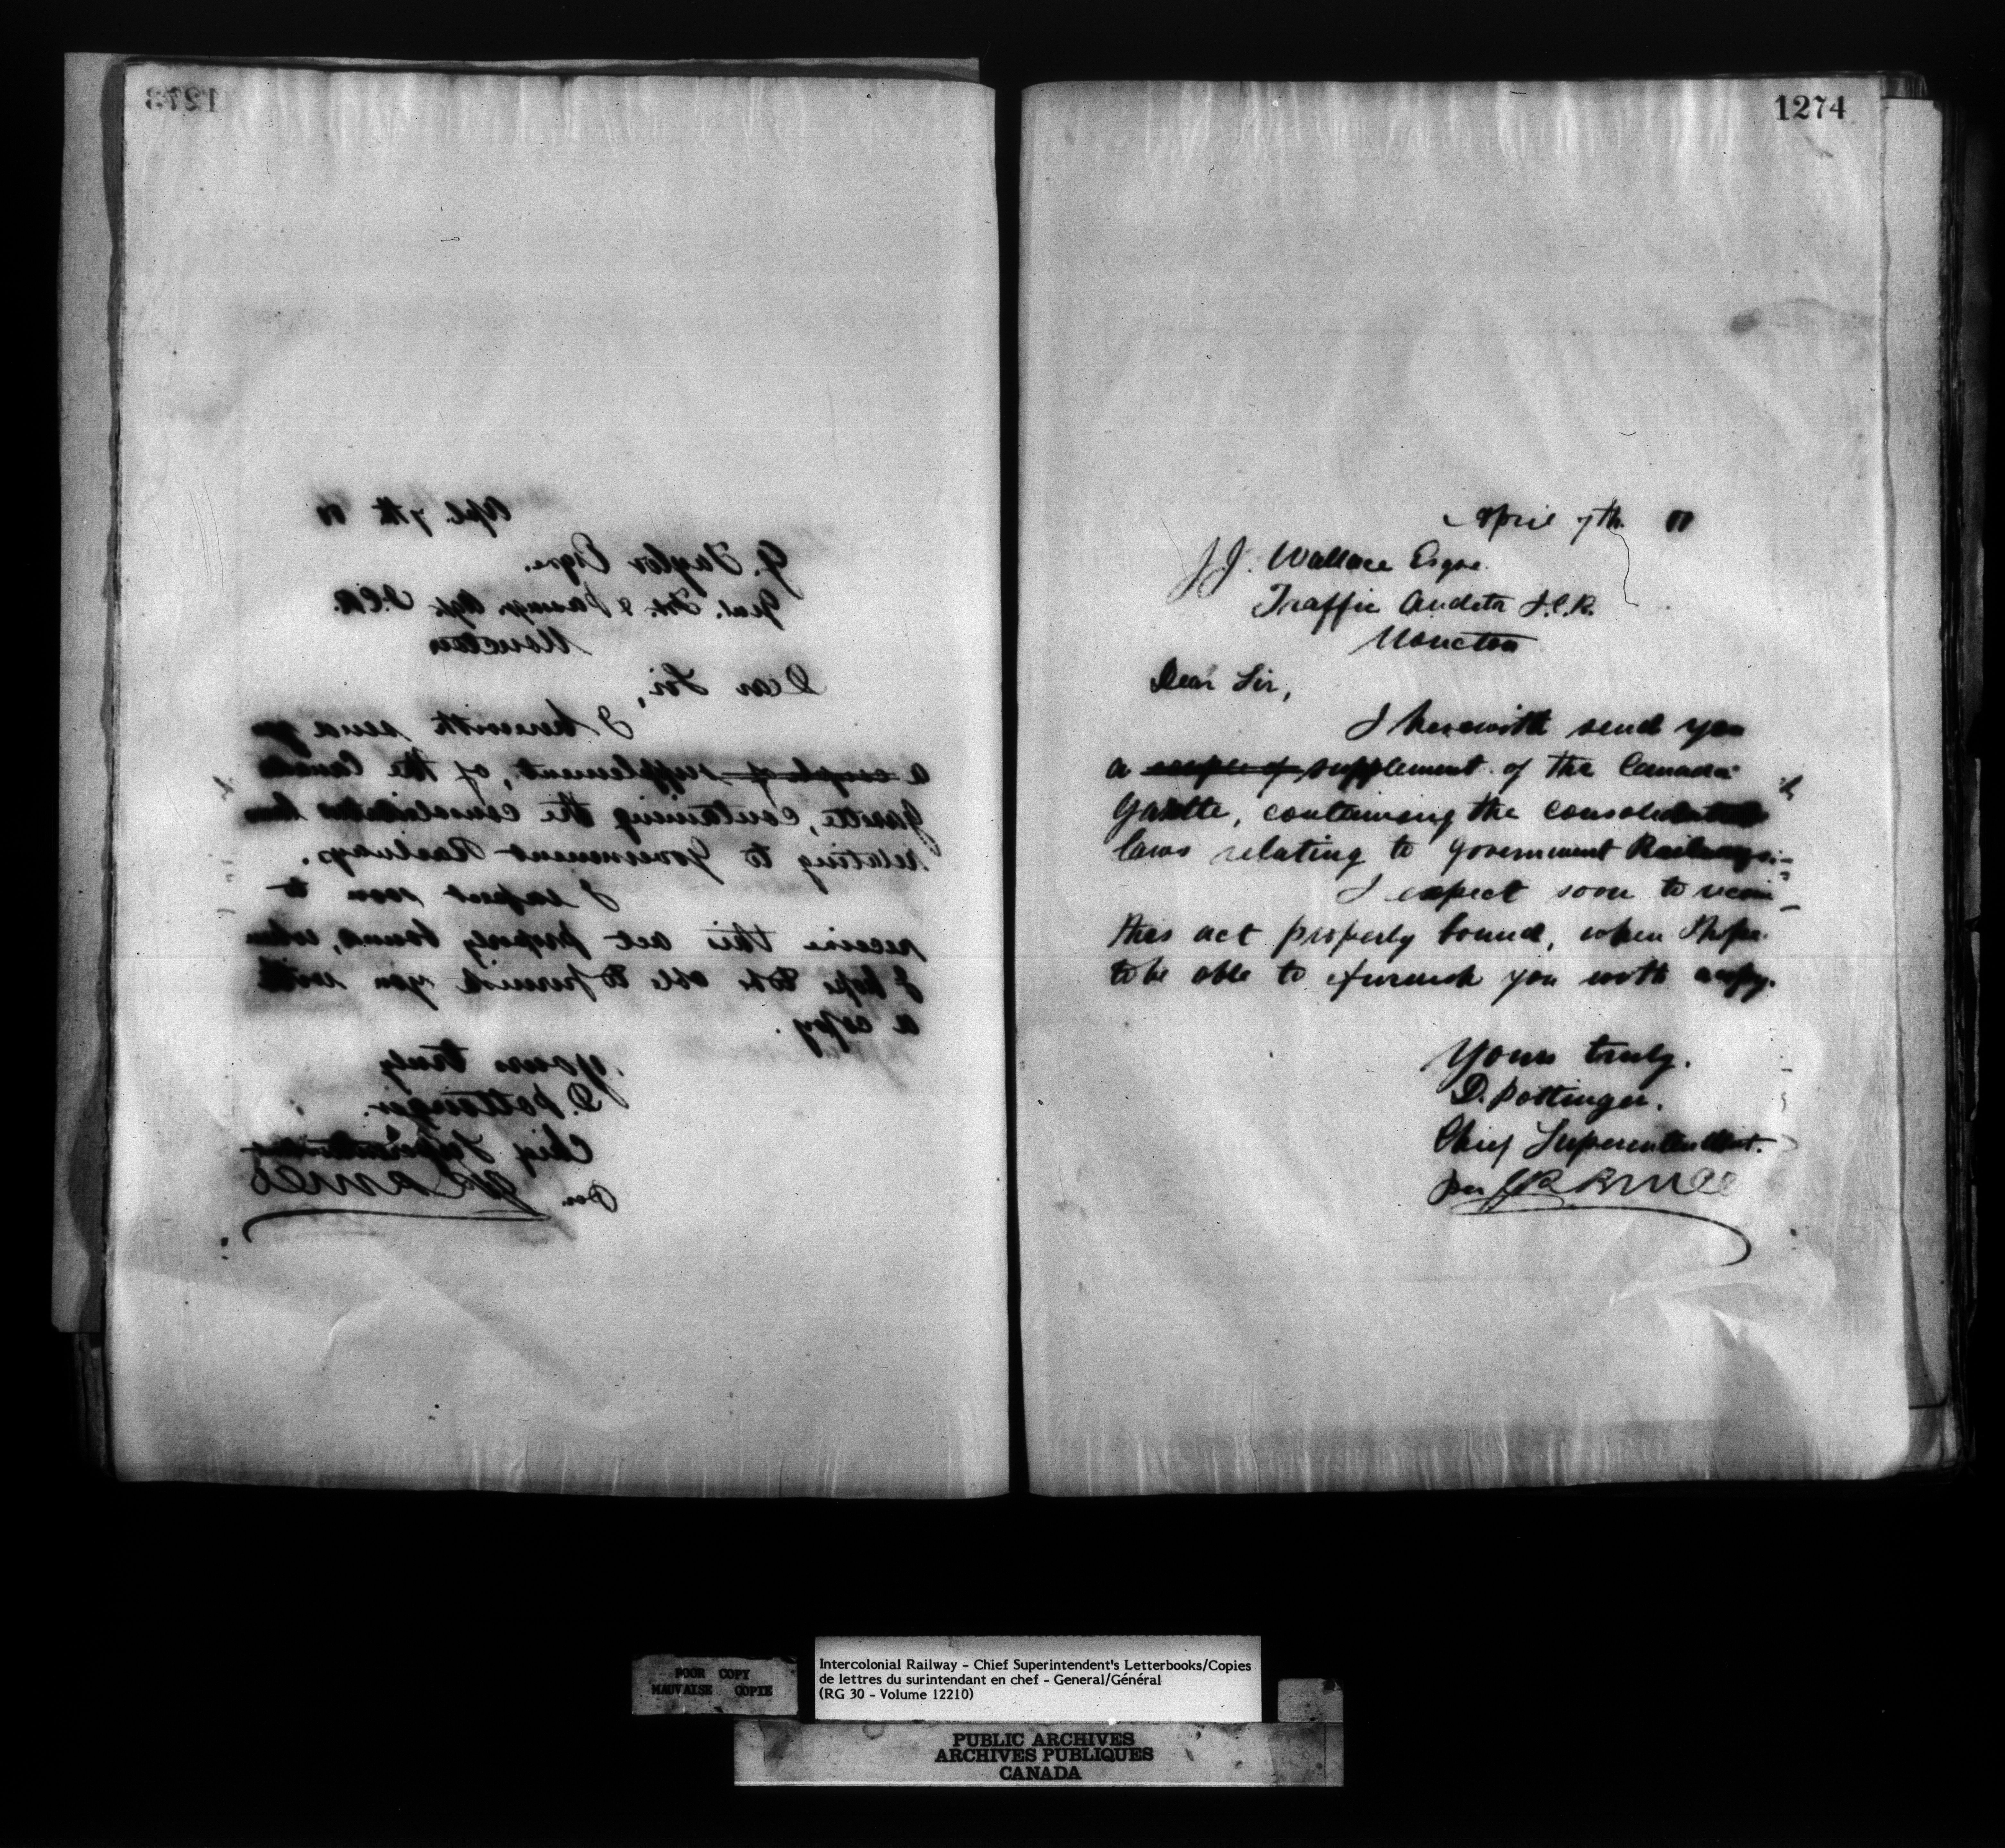 1273
Apl. 7th
G. Taylor Esqre.
Genl. Frt. & Passngr. Agt. I.C.R.
Moncton
Dear Sir,
I herewith send you
a couple of supplement, of the Canada
Gazette, containing the consolidated laws
relating to Government Railways.
I expect soon to
receive this act properly bound, when
I hope to be able to furnish you with
a copy.
Yours truly
D. Pottinger.
Chief Superintendent
Per
1274
April 7th
J.J. Wallace Esqre.
Traffic Auditr I.C.R.
Moncton
Dear Sir,
I herewith send you
a couple of supplement of the Canada
Gazette, containing the consolidated
laws relating to Government Railways.
I expect soon to receive
this act properly bound, when I hope
to be able to furnish you with a copy.
Yours truly.
D. Pottinger.
Chief Superintendent.
per
POOR COPY
MAUVAISE COPIE
Intercolonial Railway - Chief Superintendent's Letterbooks/Copies
de lettres du surintendant en chef - General/Général
(RG 30 - Volume 12210)
PUBLIC ARCHIVES
ARCHIVES PUBLIQUES
CANADA